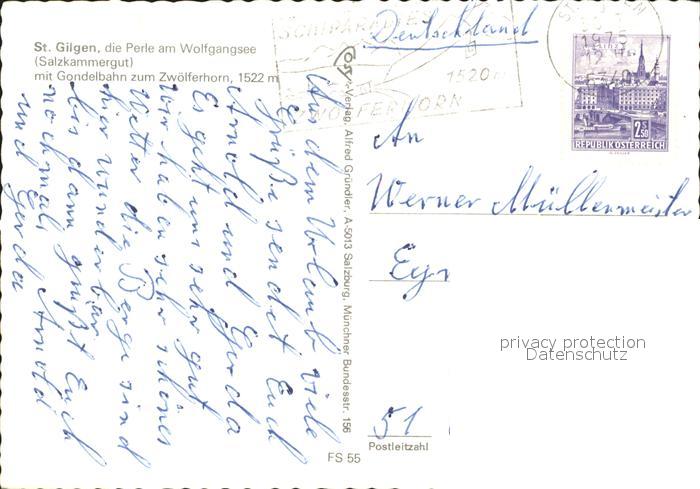 St. Gilgen, die Perle am Wolfgangsee
(Salzkammergut)
mit Gondelbahn zum Zwölferhorn, 1522 m
Aus dem Urlaub viele
Grüße sendet Euch
Arnold und Gerda
Es geht uns sehr gut
Wir haben sehr schönes
Wetter die Berge sind
hier wunderbar
bis dann grüßt Euch
nochmal Arnold
und Gerda
Cosy-Verlag Alfred Gründler, A-5013 Salzburg, Münchner Bundesstr. 156
FS 55
SCHIPARADIES
1520 m
ZWÖLFERHORN
1975
5340
2.50
REPUBLIK ÖSTERREICH
Deutschland
An
Werner Müllenmeister
51
Postleitzahl
privacy protection
Datenschutz